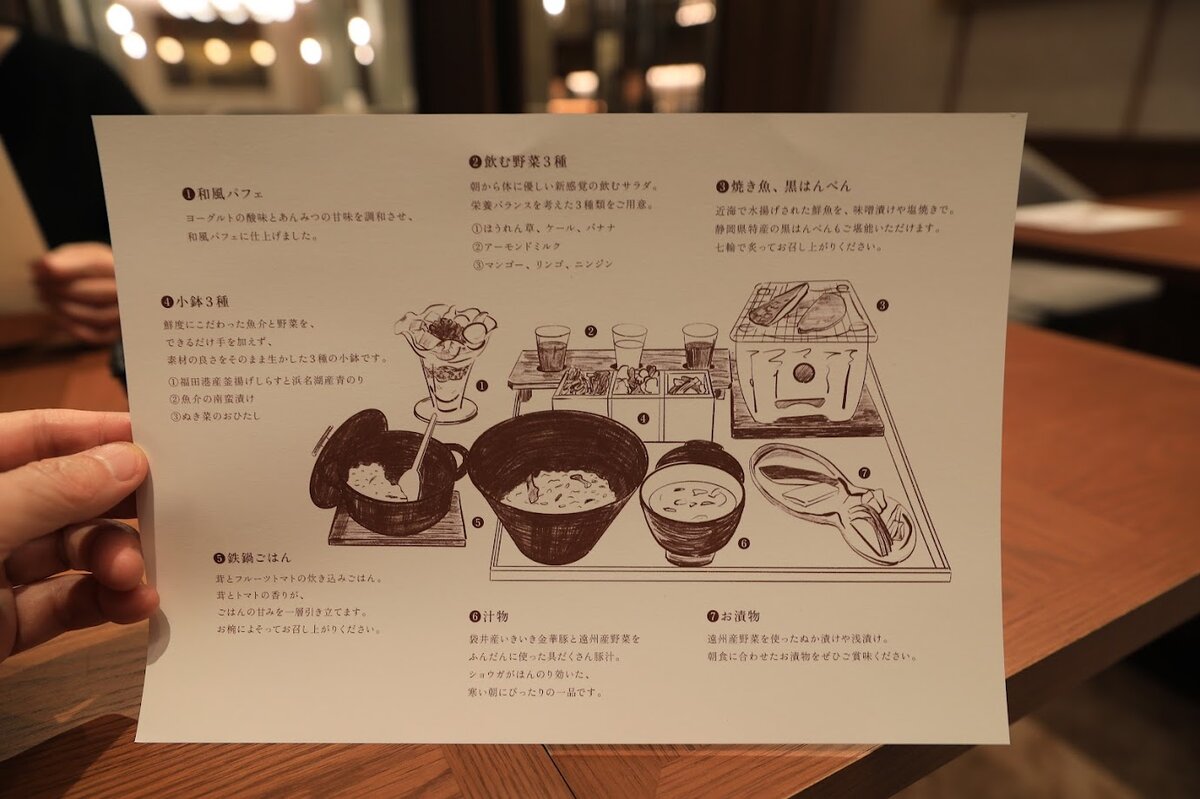 ❶和風パフェ
ヨーグルトの酸味とあんみつの甘味を調和させ、
和風パフェに仕上げました。
❷飲む野菜3種
朝から体に優しい新感覚の飲むサラダ。
栄養バランスを考えた3種類をご用意。
①ほうれん草、ケール、バナナ
②アーモンドミルク
③マンゴー、リンゴ、ニンジン
❸焼き魚、黒はんぺん
近海で水揚げされた鮮魚を、味噌漬けや塩焼きで。
静岡県特産の黒はんぺんもご堪能いただけます。
七輪で炙ってお召し上がりください。
❹小鉢3種
鮮度にこだわった魚介と野菜を、
できるだけ手を加えず、
素材の良さをそのまま生かした3種の小鉢です。
①福田港産釜揚げしらすと浜名湖産青のり
②魚介の南蛮漬け
③ぬき菜のおひたし
❶
❷
❸
❹
❺
❻
❼
❺鉄鍋ごはん
茸とフルーツトマトの炊き込みごはん。
茸とトマトの香りが、
ごはんの甘みを一層引き立てます。
お椀によそってお召し上がりください。
❻汁物
袋井産いきいき金華豚と遠州産野菜を
ふんだんに使った具だくさん豚汁。
ショウガがほんのり効いた、
寒い朝にぴったりの一品です。
❼お漬物
遠州産野菜を使ったぬか漬けや浅漬け。
朝食に合わせたお漬物をぜひご賞味ください。